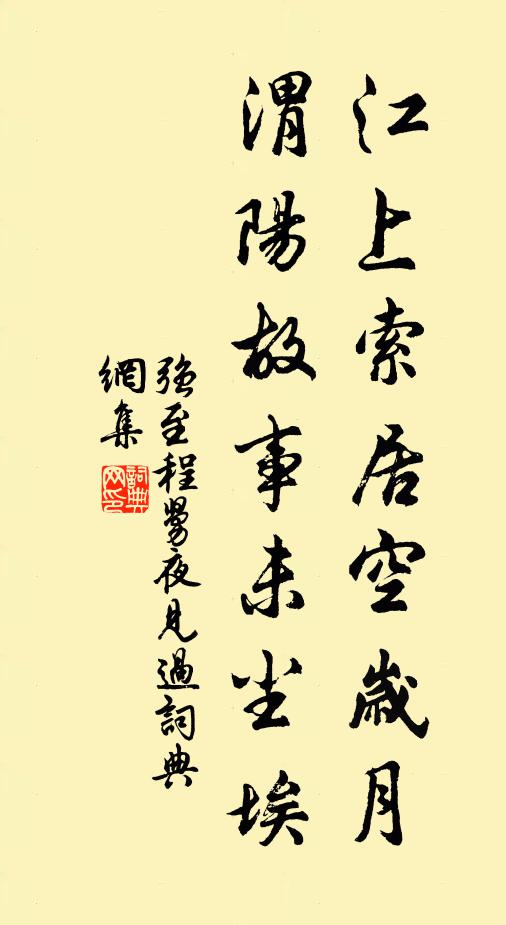 江上索居空歲月
渭陽故事未尘埃
強至程舅夜見過詞典
網集
詞典
网印